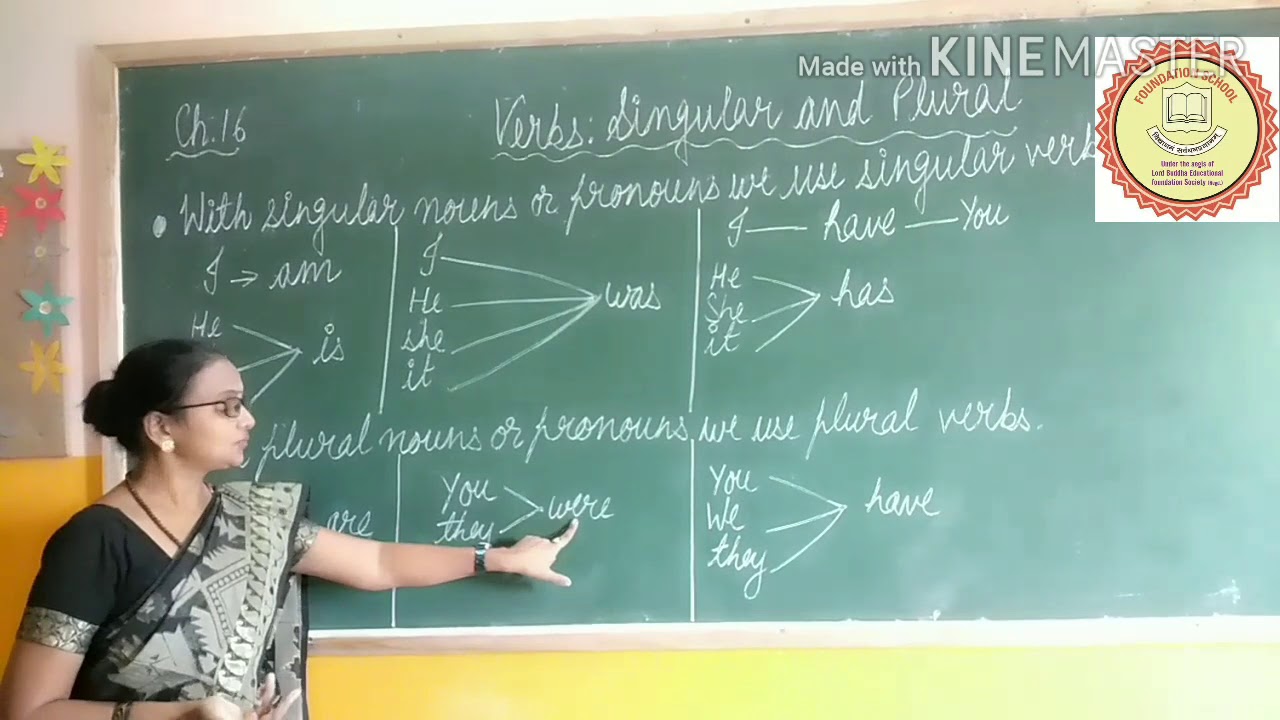 Made with KINEMASTER
FOUNDATION SCHOOL
Under the aegis of
Lord Buddha Educational
foundation Society (Regd.)
Ch:16
Verbs: Singular and Plural
• With singular nouns or pronouns we use singular verb
I → am
He
is
I
He
she
it
was
I — have — You
He
She
it
has
plural nouns or pronouns we use plural verbs.
are
You
they
were
You
We
they
have